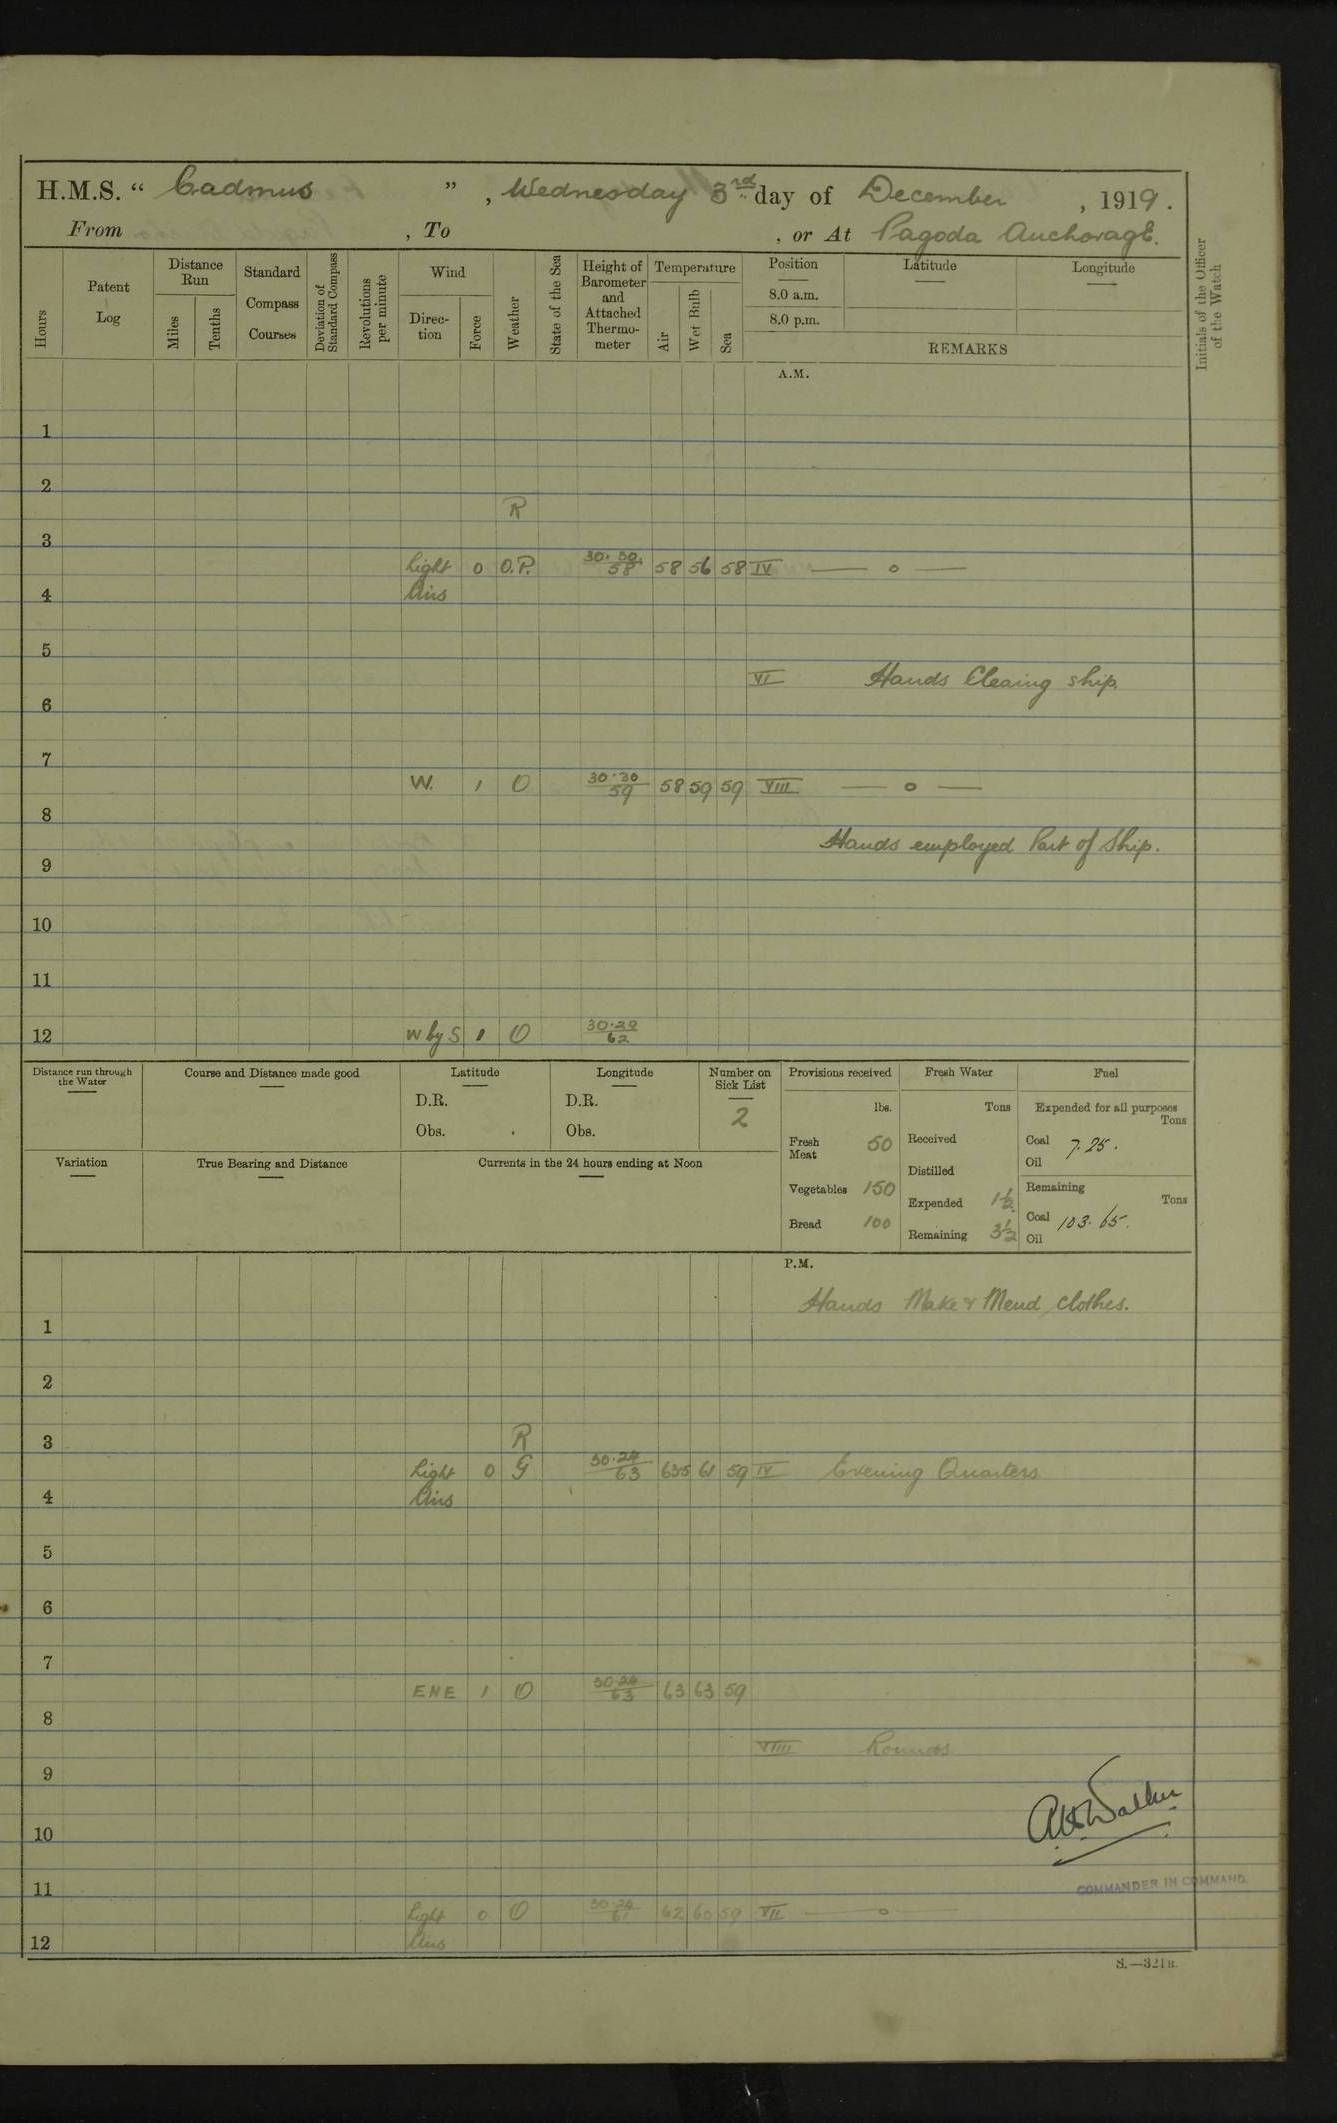 H.M.S. “ Cadmus ” , Wednesday 3rd day of December , 1919 .
From , To , or At Pagoda Anchorage.
Hours
Patent Log
Distance Run
Miles
Tenths
Standard Compass Courses
Deviation of Standard Compass
Revolutions per minute
Wind
Direc- tion
Force
Weather
State of the Sea
Height of Barometer and Attached Thermo- meter
Temperature
Air
Wet Bulb
Sea
Position
8.0 a.m.
8.0 p.m.
Latitude
Longitude
REMARKS
Initials of the Officer of the Watch
A.M.
1
2
R
3
Light 0 O.P. 30.30 58 58 56 58 IV — o —
4 Airs
5
VI Hands Cleaing ship.
6
7
W. 1 O 30.30 59 58 59 59 VIII — o —
8
Hands employed Part of Ship.
9
10
11
12 W by S 1 O 30.29 62
Distance run through the Water
Course and Distance made good
Latitude
D.R.
Obs.
Longitude
D.R.
Obs.
Number on Sick List
2
Provisions received
lbs.
Fresh Meat 50
Vegetables 150
Bread 100
Fresh Water
Tons
Received
Distilled
Expended 1½
Remaining 3½
Fuel
Expended for all purposes
Tons
Coal 7.25.
Oil
Remaining
Tons
Coal 103.65.
Oil
Variation
True Bearing and Distance
Currents in the 24 hours ending at Noon
P.M.
Hands Make & Mend clothes.
1
2
3 R
Light 0 G 30.24 63 635 61 59 IV Evening Quarters
4 Airs
5
6
7
ENE 1 O 30.24 63 63 63 59
8
VIIII Rounds
9
A Walker
10
11 COMMANDER IN COMMAND.
Light 0 O 30.24 61 62 60 59 XII — o —
12 Airs
S.—321